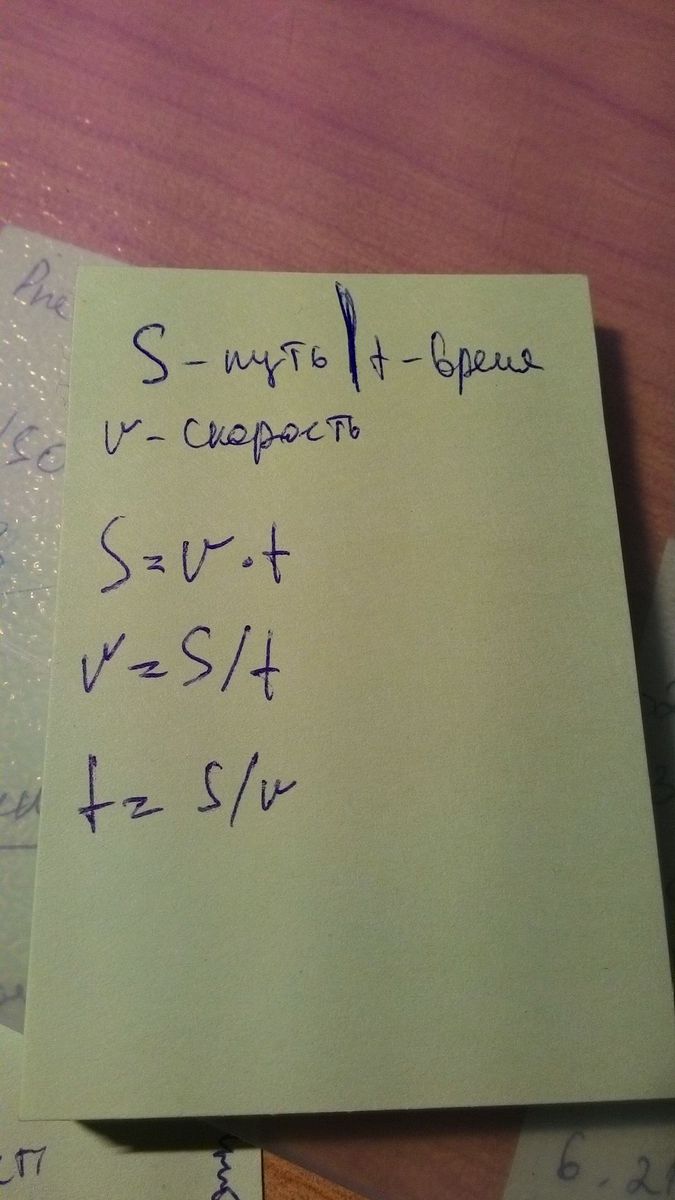 S - путь | t - время
v - скорость
S = v · t
v = S/t
t = S/v
6.